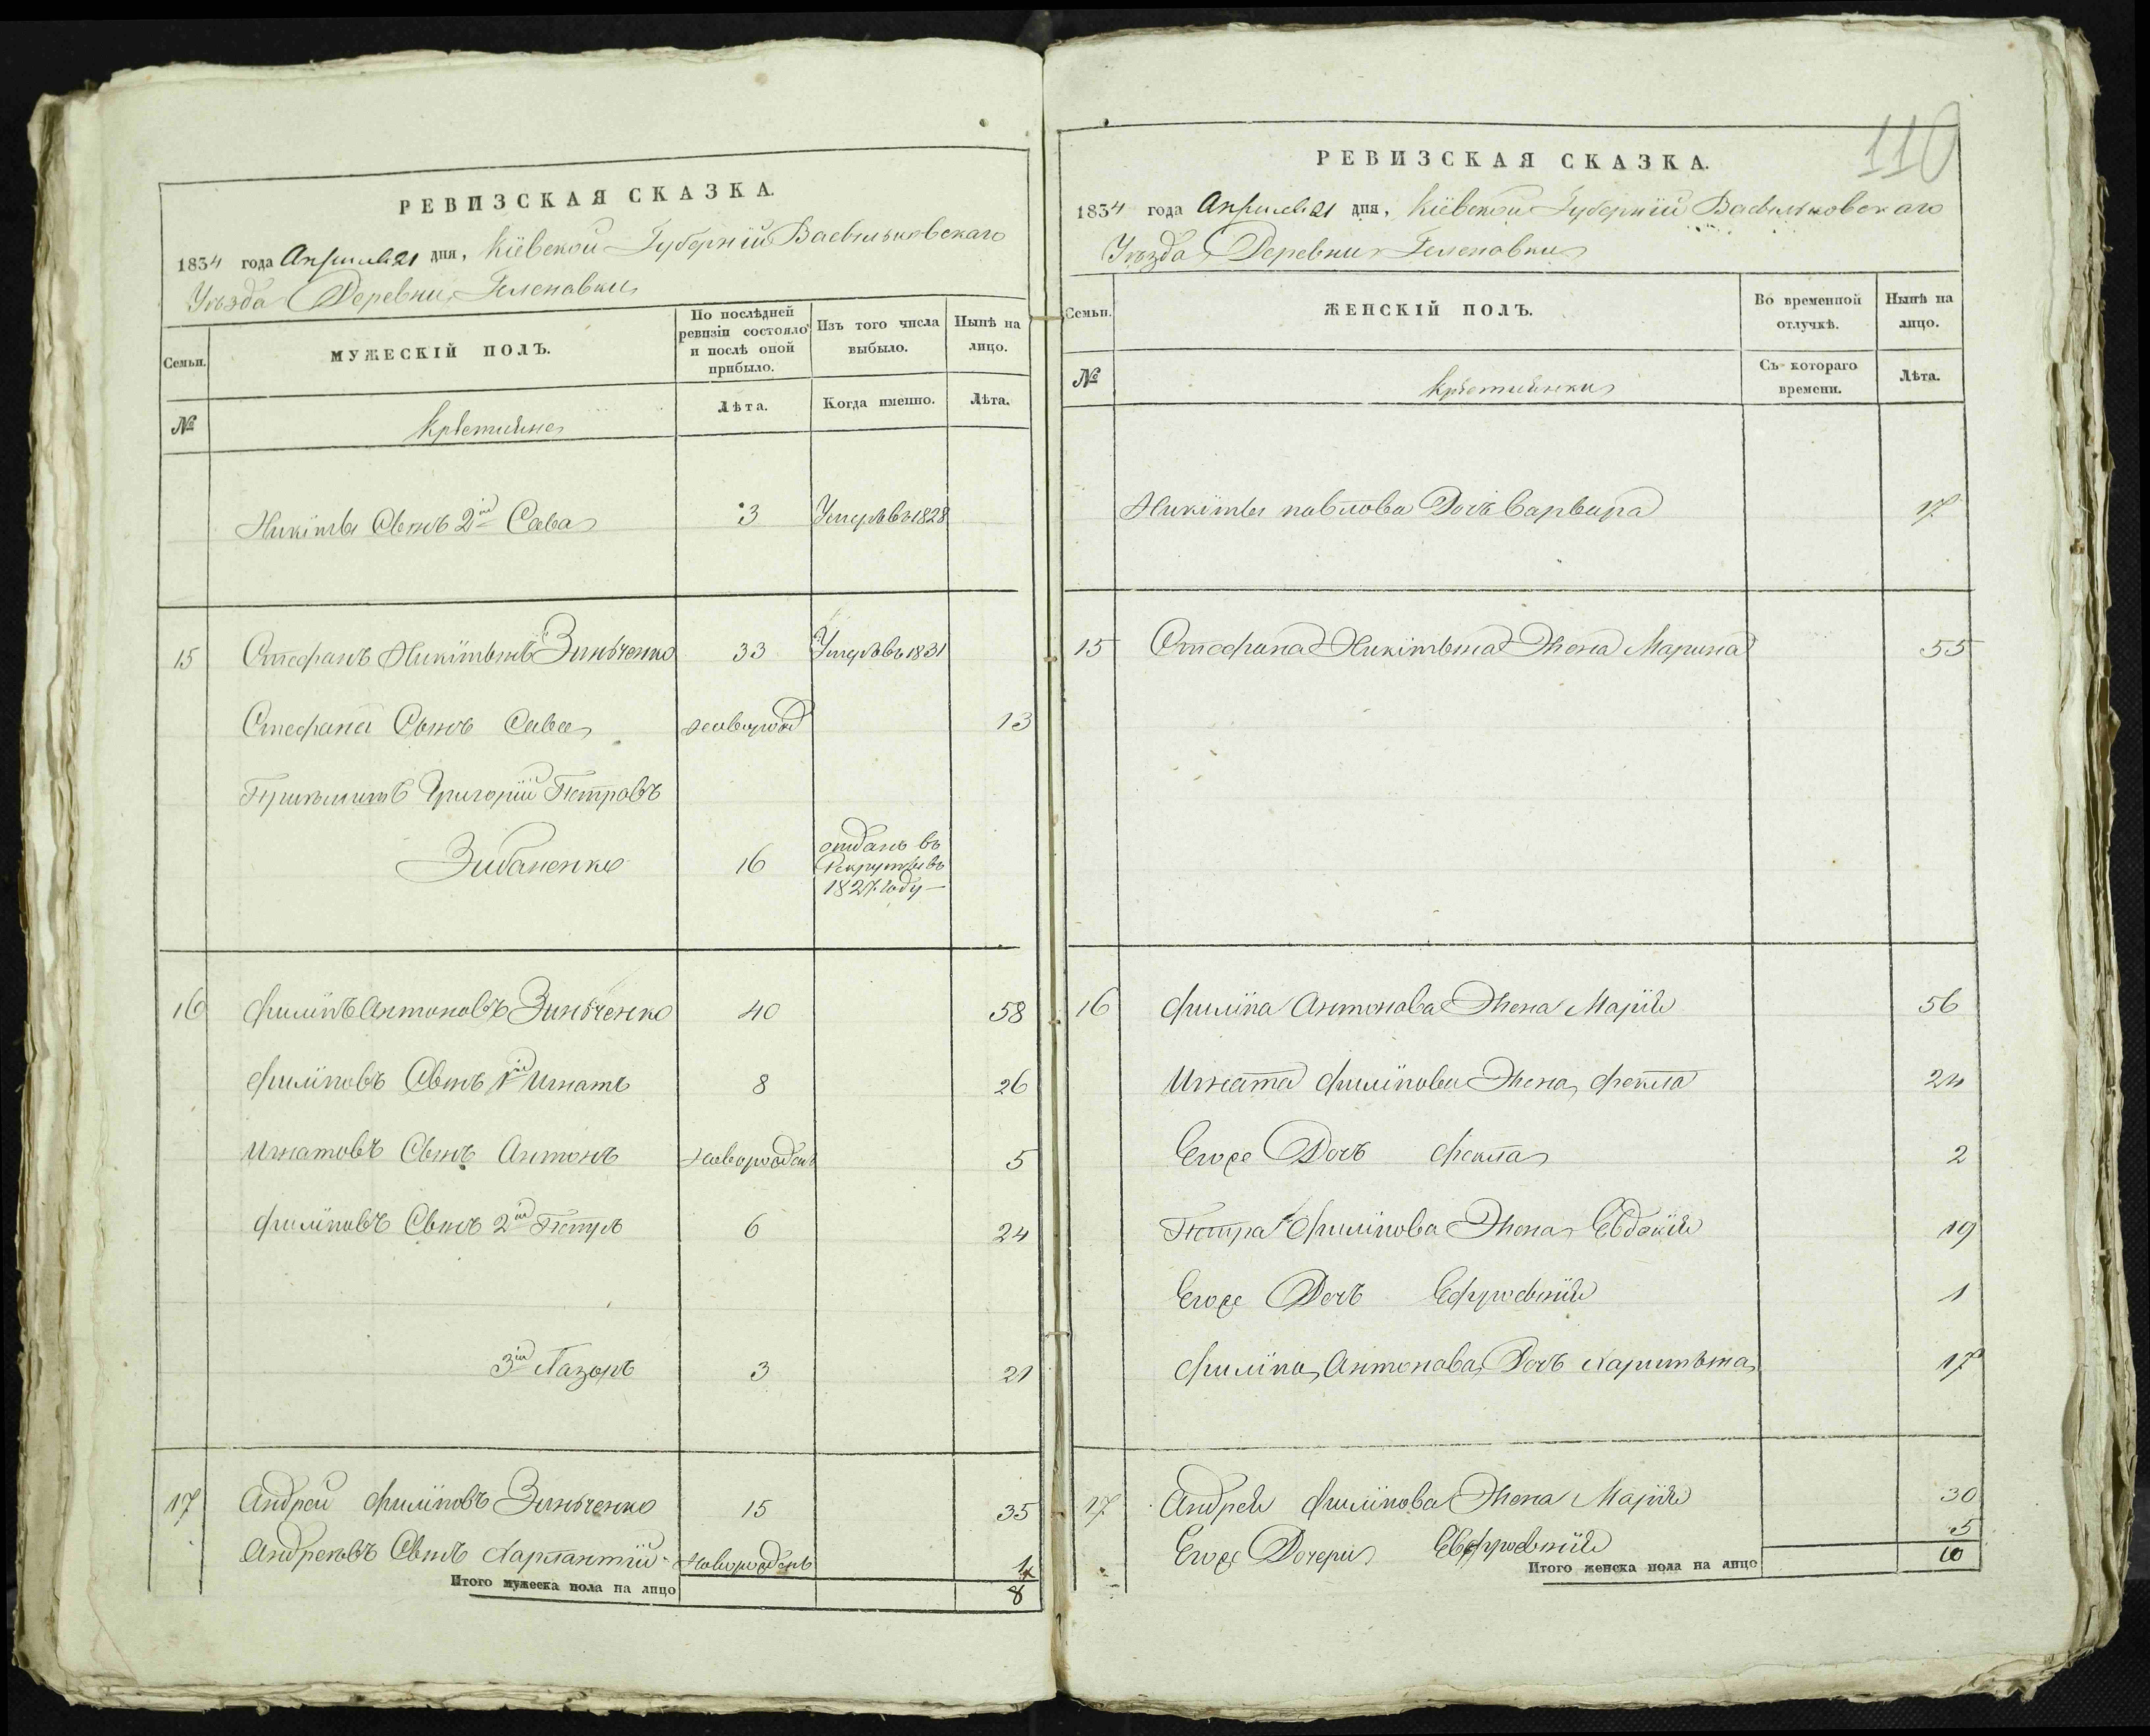 РЕВИЗСКАЯ СКАЗКА.
1834 года Апреля 21 дня, Кіевской Губерніи Васильковскаго
Уѣзда Деревни Геленовки
Семьи.
МУЖЕСКІЙ ПОЛЪ.
По послѣдней ревизіи состояло и послѣ оной прибыло.
Изъ того числа выбыло.
Нынѣ на лицо.
№
Крѣстьяне
Лѣта.
Когда именно.
Лѣта.
Никиты Сынъ 2й Сава 3 Умеръ въ 1828
15 Стефанъ Никитинъ Зинъченко 33 Умеръ въ 1831
Стефана Сынъ Сава новорожд 13
Григорій Петровъ
Зибаненко 16 отданъ въ
Рекруты въ
1827 году
16 Филипъ Антоновъ Зинъченко 40 58
Филиповъ Сынъ 1й Игнатъ 8 26
Игнатовъ Сынъ Антонъ новорожденъ 5
Филиповъ Сынъ 2й Петръ 6 24
3й Лазоръ 3 21
17 Андрей Филиповъ Зинъченко 15 35
Андреевъ Сынъ Харлантій новорожденъ 1
Итого мужеска пола на лицо 8
110
РЕВИЗСКАЯ СКАЗКА.
1834 года Апреля 21 дня, Кіевской Губерніи Васильковскаго
Уѣзда Деревни Геленовки
Семьи.
ЖЕНСКІЙ ПОЛЪ.
Во временной отлучкѣ.
Нынѣ на лицо.
№
Крѣстьянки
Съ котораго времени.
Лѣта.
Никиты павлова Дочь Варвара 17
15 Стефана Никитина Жена Марина 55
16 Филипа Антонова Жена Марія 56
Игната Филипова Жена Фекла 24
Егоже Дочь Фекла 2
Петра Филипова Жена Евдокія 19
Егоже Дочь Ефросинія 1
Филипа Антонова Дочь Харитына 17
17 Андрея Филипова Жена Марія 30
Егоже Дочери Евфросинія 5
Итого женска пола на лицо 10